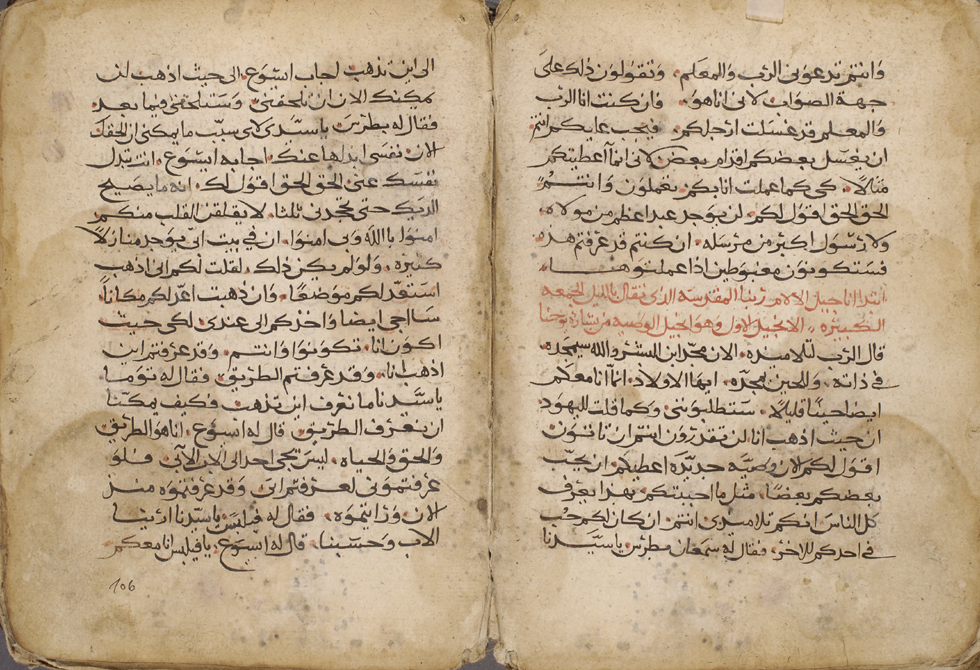 وانتم تدعوني الرب والمعلم. وتقولون ذلك على
جهة الصواب لاني انا هو. فان كنت انا الرب
والمعلم قد غسلت ارجلكم. فيجب عليكم انتم
ان يغسل بعضكم اقدام بعض لاني انما اعطيتكم
مثالا. كي كما عملت انا بكم تعملون وانتم
الحق الحق اقول لكم. لن يوجد عبد اعظم من مولاه.
ولا رسول اكبر من مرسله. ان كنتم قد عرفتم هذه
فستكونون مغبوطين اذا عملتوها
ابتدا اناجيل الالام ربنا المقدسه الذي تقال بالليل الجمعه
الكبيره. الانجيل الاول وهو انجيل الوصيه من بشارة يوحنا
قال الرب لتلاميذه. الان مجد ابن البشر والله سيمجده
في ذاته. وللحين يمجده. ايها الاولاد. انما انا معكم
ايضا حينا قليلا. ستطلبونني وكما قلت لليهود
ان حيث اذهب انا. لن تقدرون انتم ان تاتون
اقول لكم الان وصيه جديده اعطيكم ان يحب
بعضكم بعضا. مثل ما احببتكم بهذا يعرف
كل الناس انكم تلاميذي انتم. ان كان لكم حب
في احدكم للاخر. فقال له سمعان بطرس ياسيدنا
الى اين تذهب اجاب ايسوع. الى حيث اذهب لن
يمكنك الان ان تلحقني. وستلحقني فيما بعد.
فقال له بطرس ياسيدي لاي سبب ما يمكنني الحقك
الان نفسي ابدلها عنك. اجابه ايسوع. انت تبدل
نفسك عني الحق الحق اقول لك. انه ما يصيح
الديك حتى تجحدني ثلثا. لا يقلقن القلب منكم
امنوا بالله وبي امنوا. ان في بيت ابي يوجد منازلا
كثيره. ولو لم يكن ذلك. لقلت لكم اني اذهب
استعد لكم موضعا. وان ذهبت اعد لكم مكانا.
سااجي ايضا واخذكم الى عندي. لكي حيث
اكون انا. تكونوا وانتم. وقد عرفتم اين
اذهب انا. وقد عرفتم الطريق. فقال له توما.
ياسيدنا ما نعرف اين تذهب فكيف يمكننا
ان نعرف الطريق. قال له ايسوع. انا هو الطريق
والحق والحياه. ليس يجي احد الى الاب الا بي. فلو
عرفتموني لعرفتم ابي. وقد عرفتموه منذ
الان ورايتموه. فقال له فيلبس ياسيدنا ارينا
الاب وحسبنا. قال له ايسوع. يا فيلبس انا معكم
106